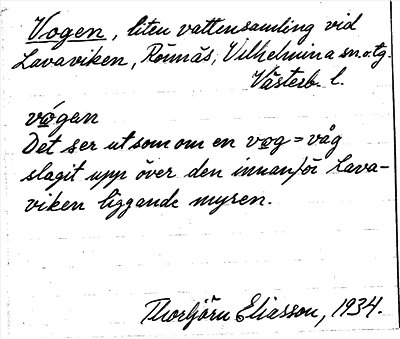 Vogen, liten vattensamling vid
Lavaviken, Rönnäs, Vilhelmina sn.o.tg.
Västerb. l.
vógen
Det ser ut som om en vog = våg
slagit upp över den innanför Lava-
viken liggande myren.
Thorbjörn Eliasson, 1934.